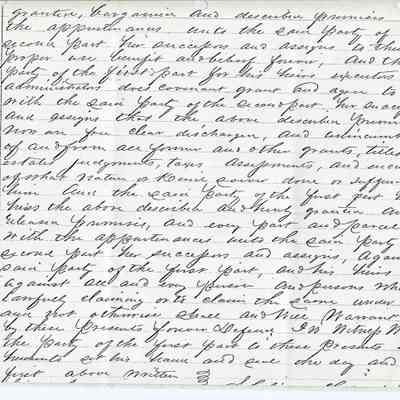 grantine, bargainin and describin premises
the appurtenances unto the said party of
second part her successors and assigns to their
proper use benefit and behoof forever, And the
party of the first part for his heirs executors
administrators does covenant grant and agree to
with the said party of the second part, her succ
and assigns that the above describin premis
now are free clear discharged, and unincumb
of and from all former and other grants, titles
estates judgments, taxes assessments, and incu
of what nature or kind soever done or suffer
him And the said party of the first part
the above describin and hereby grantin an
released premises, and every part and parcel
with the appurtenances unto the said party
second part her successors and assigns, again
said party of the first part, and his heirs
against all and every person and persons wh
lawfully claiming or to claim the same under
any not otherwise shall and will Warrant
by these Presents forever Defend In Witness W
the party of the first part to these presents
hereunto set his hand and seal the day and
first above written